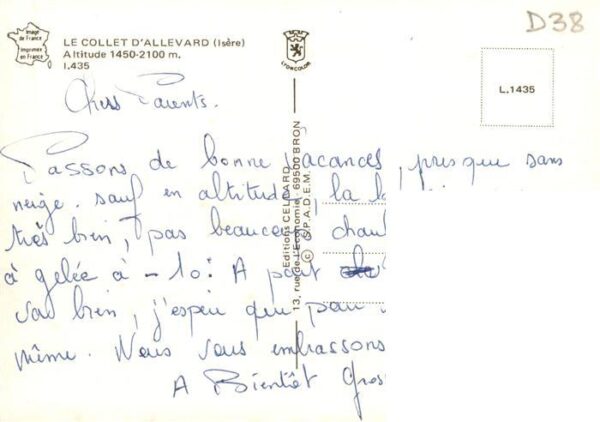 Image
de France
Imprimée
en France
LE COLLET D'ALLEVARD (Isère)
Altitude 1450-2100 m.
I.435
LYONCOLOR
D38
L.1435
Chers Parents.
Passons de bonne vacances, presque sans
neige. sauf en altitude, la
très bien, pas beaucoup chau
à gelée à -10° A part
va bien, j'espeu que pour
même. Nous vous embrassons
A Bientôt Gros
Editions CELLARD
13, rue de l'Economie - 69500 BRON
(C) S.P.A.D.E.M.